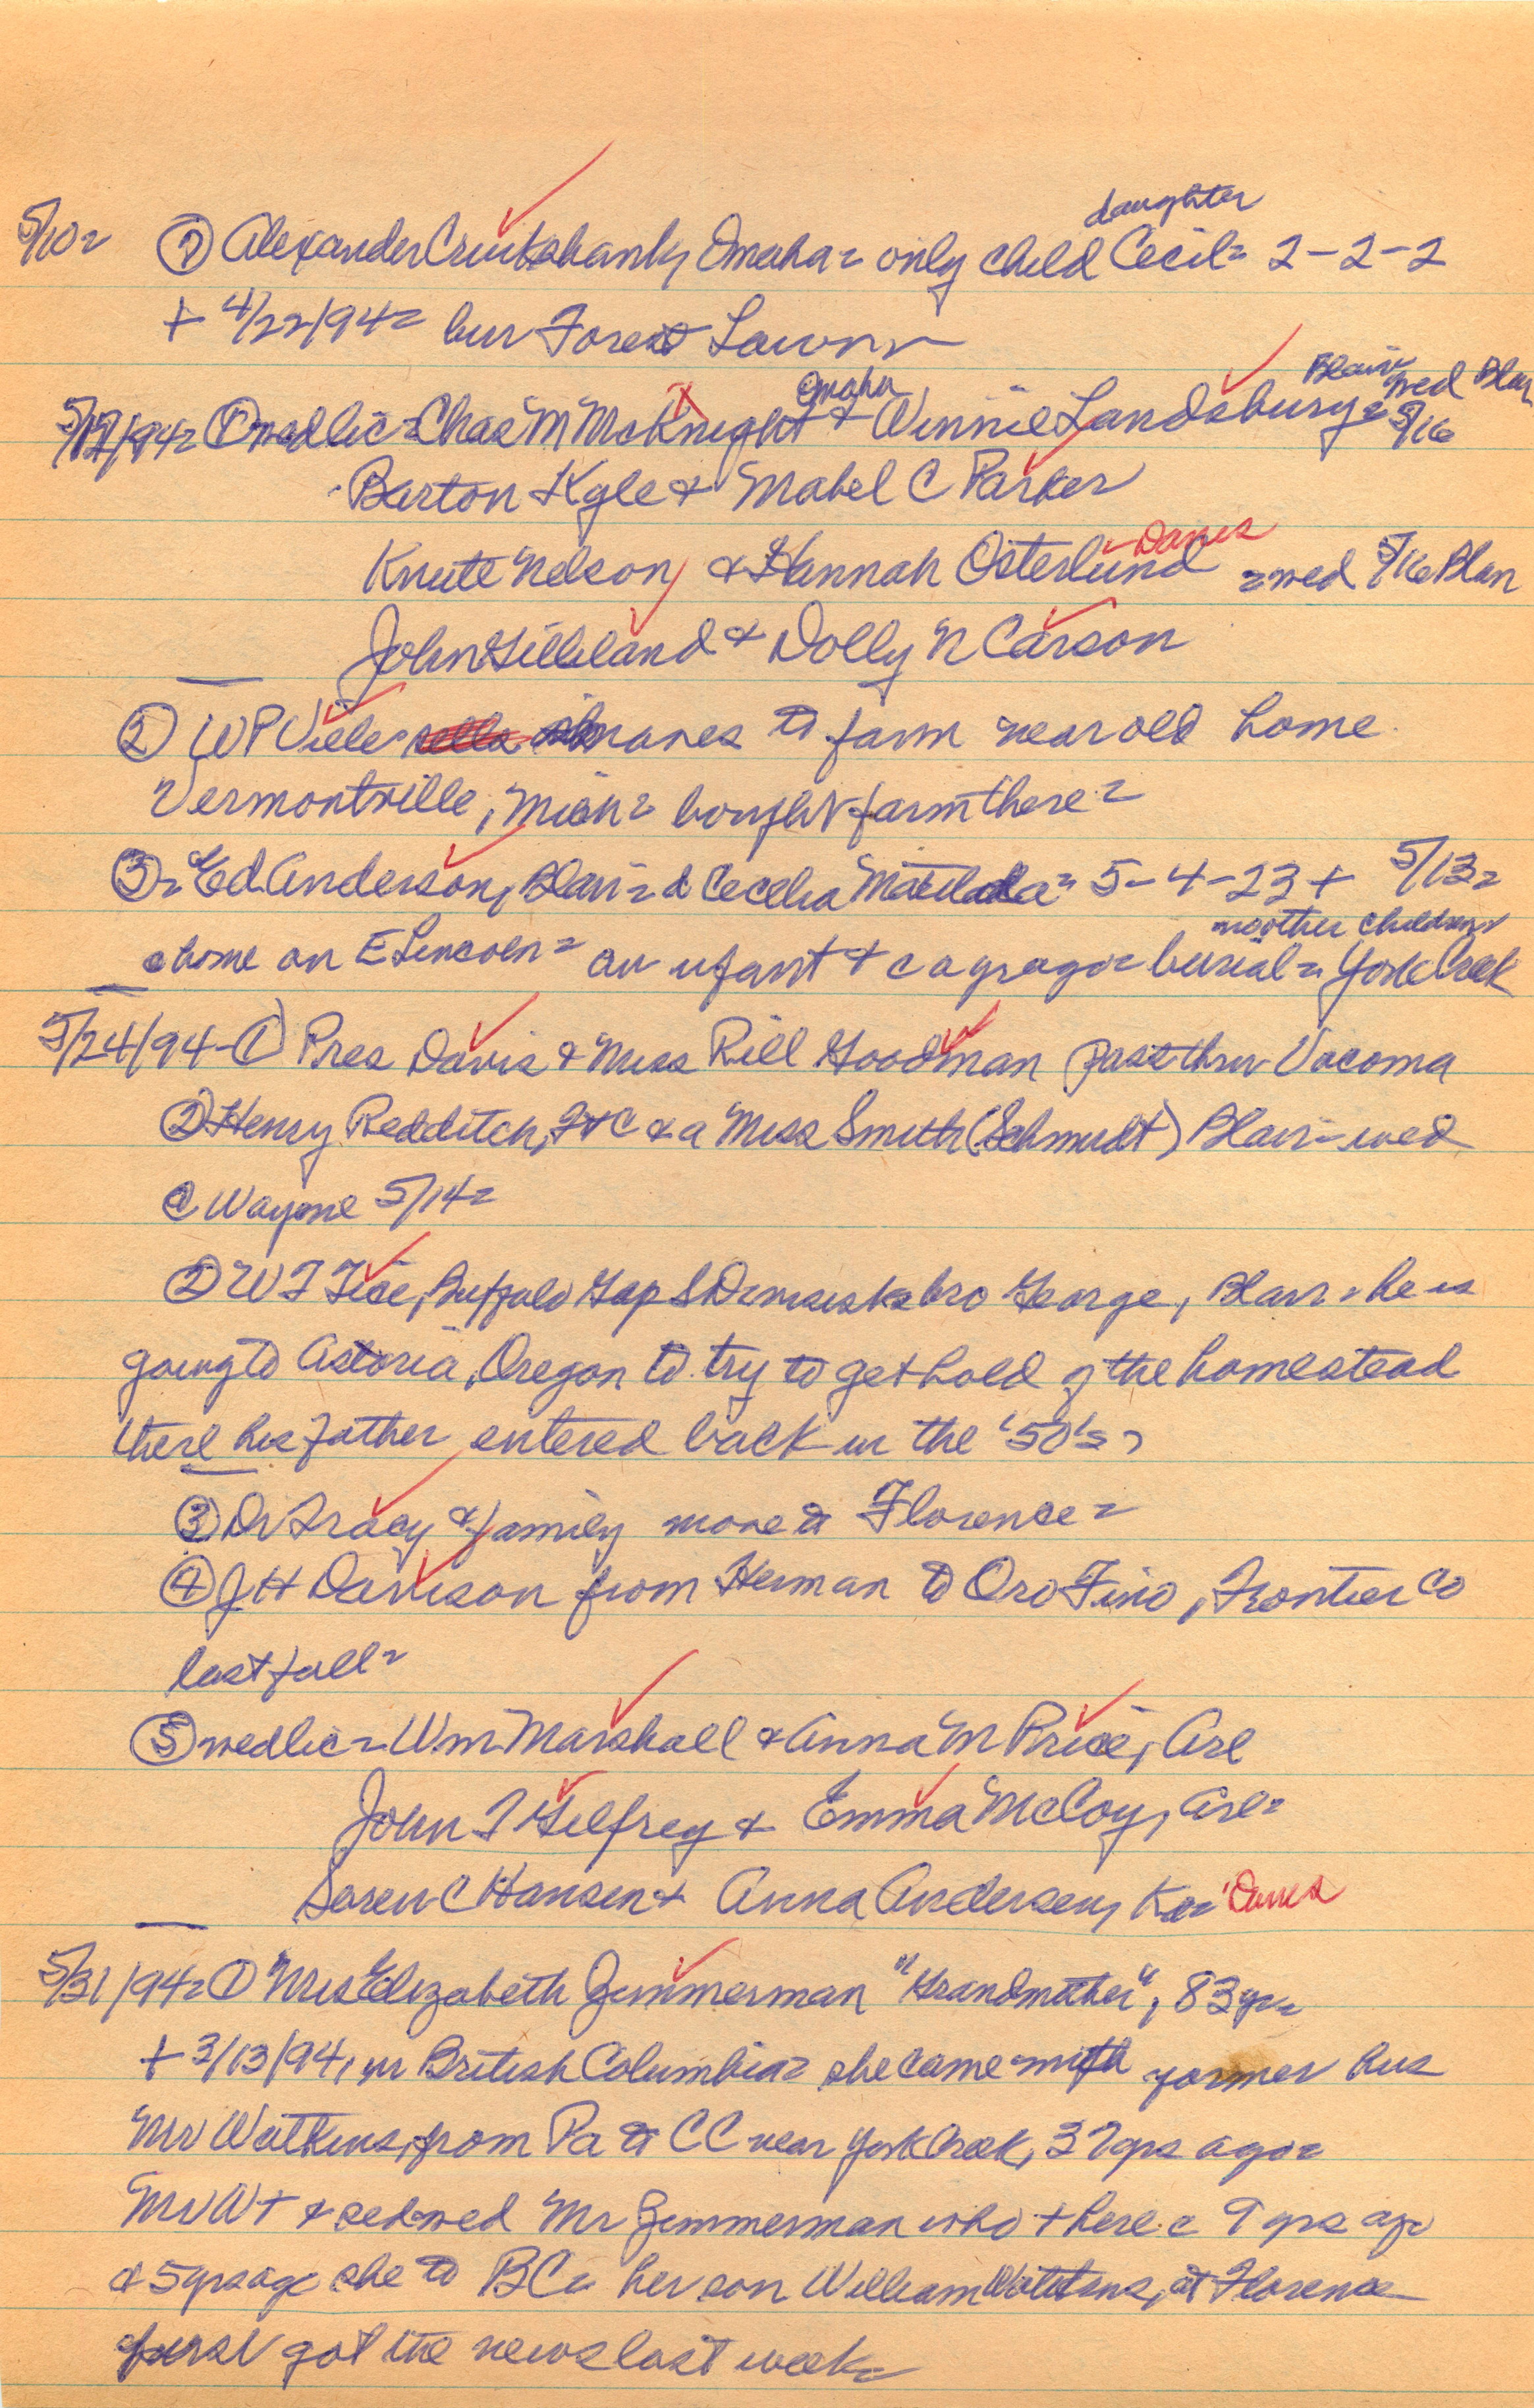 daughter
5/10= ⑦ Alexander Cruikshank, Omaha= only child Cecil= 2-2-2
+ 4/22/94= bur Forest Lawn=
Omaha Blair= wed Blair
5/17/94= ① wedlic= Chas M McKnight + Winnie Landsbury= 5/16
Barton Kyle + Mabel C Parker
Davis
Knute Nelson, + Hannah Osterlund =wed 5/16 Blair
John Gilleland + Dolly N Carson
② W P Viele= moves to farm near old home
Vermontville, Mich= bought farm there=
③= Ed Anderson, Blair= d Cecelia Matilda= 5-4-23 + 5/13=
mother children
c home on E Lincoln= an infant + c a yr ago= burial= York Creek
5/24/94-① Pres Davis + Miss Rill Goodman pass thru Vacoma
② Henry Redditch, Ft C + a Miss Smith (Schmidt) Blair= wed
@ Wayne 5/14=
② W T Tice, Buffalo Gap S D visits bro George, Blair= he is
going to Astoria, Oregon to try to get hold of the homestead
there his father entered back in the '50's=
③ Dr Tracy + family move to Florence=
④ J H Davison from Herman to Oro Fino, Frontier Co
last fall=
⑤ wedlic= Wm Marshall + Anna M Price, Arl
John T Gilfrey + Emma McCoy, Arl=
Soren C Hansen + Anna Andersen, Ken= Davis
5/31/94= ① Mrs Elizabeth Zimmerman "Grandmother", 83 yrs=
+ 3/13/94, in British Columbia= she came with former hus
Mr Watkins, from Pa to CC near York Creek, 37 yrs ago=
Mr W + & she wed Mr Zimmerman who + here c 9 yrs ago
& 5 yrs ago she to BC= her son William Watkins, at Florence
first got the news last week=